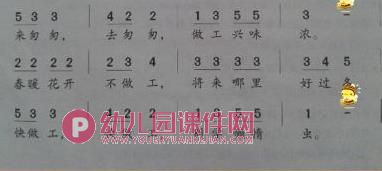 5 3 3 | 4 2 2 | 1 3 5 5 | 3 -
来匆匆， 去匆匆， 做工兴味 浓。
2 2 2 2 | 2 3 4 | 3 3 3 3 | 3 4 5
春暖花开 不做工， 将来哪里 好过
5 3 3 | 4 2 2 | 1 3 5 5 | 1 -
快做工， 虫。
幼儿园课件网
WWW.YOUERYUANKEJIAN.COM